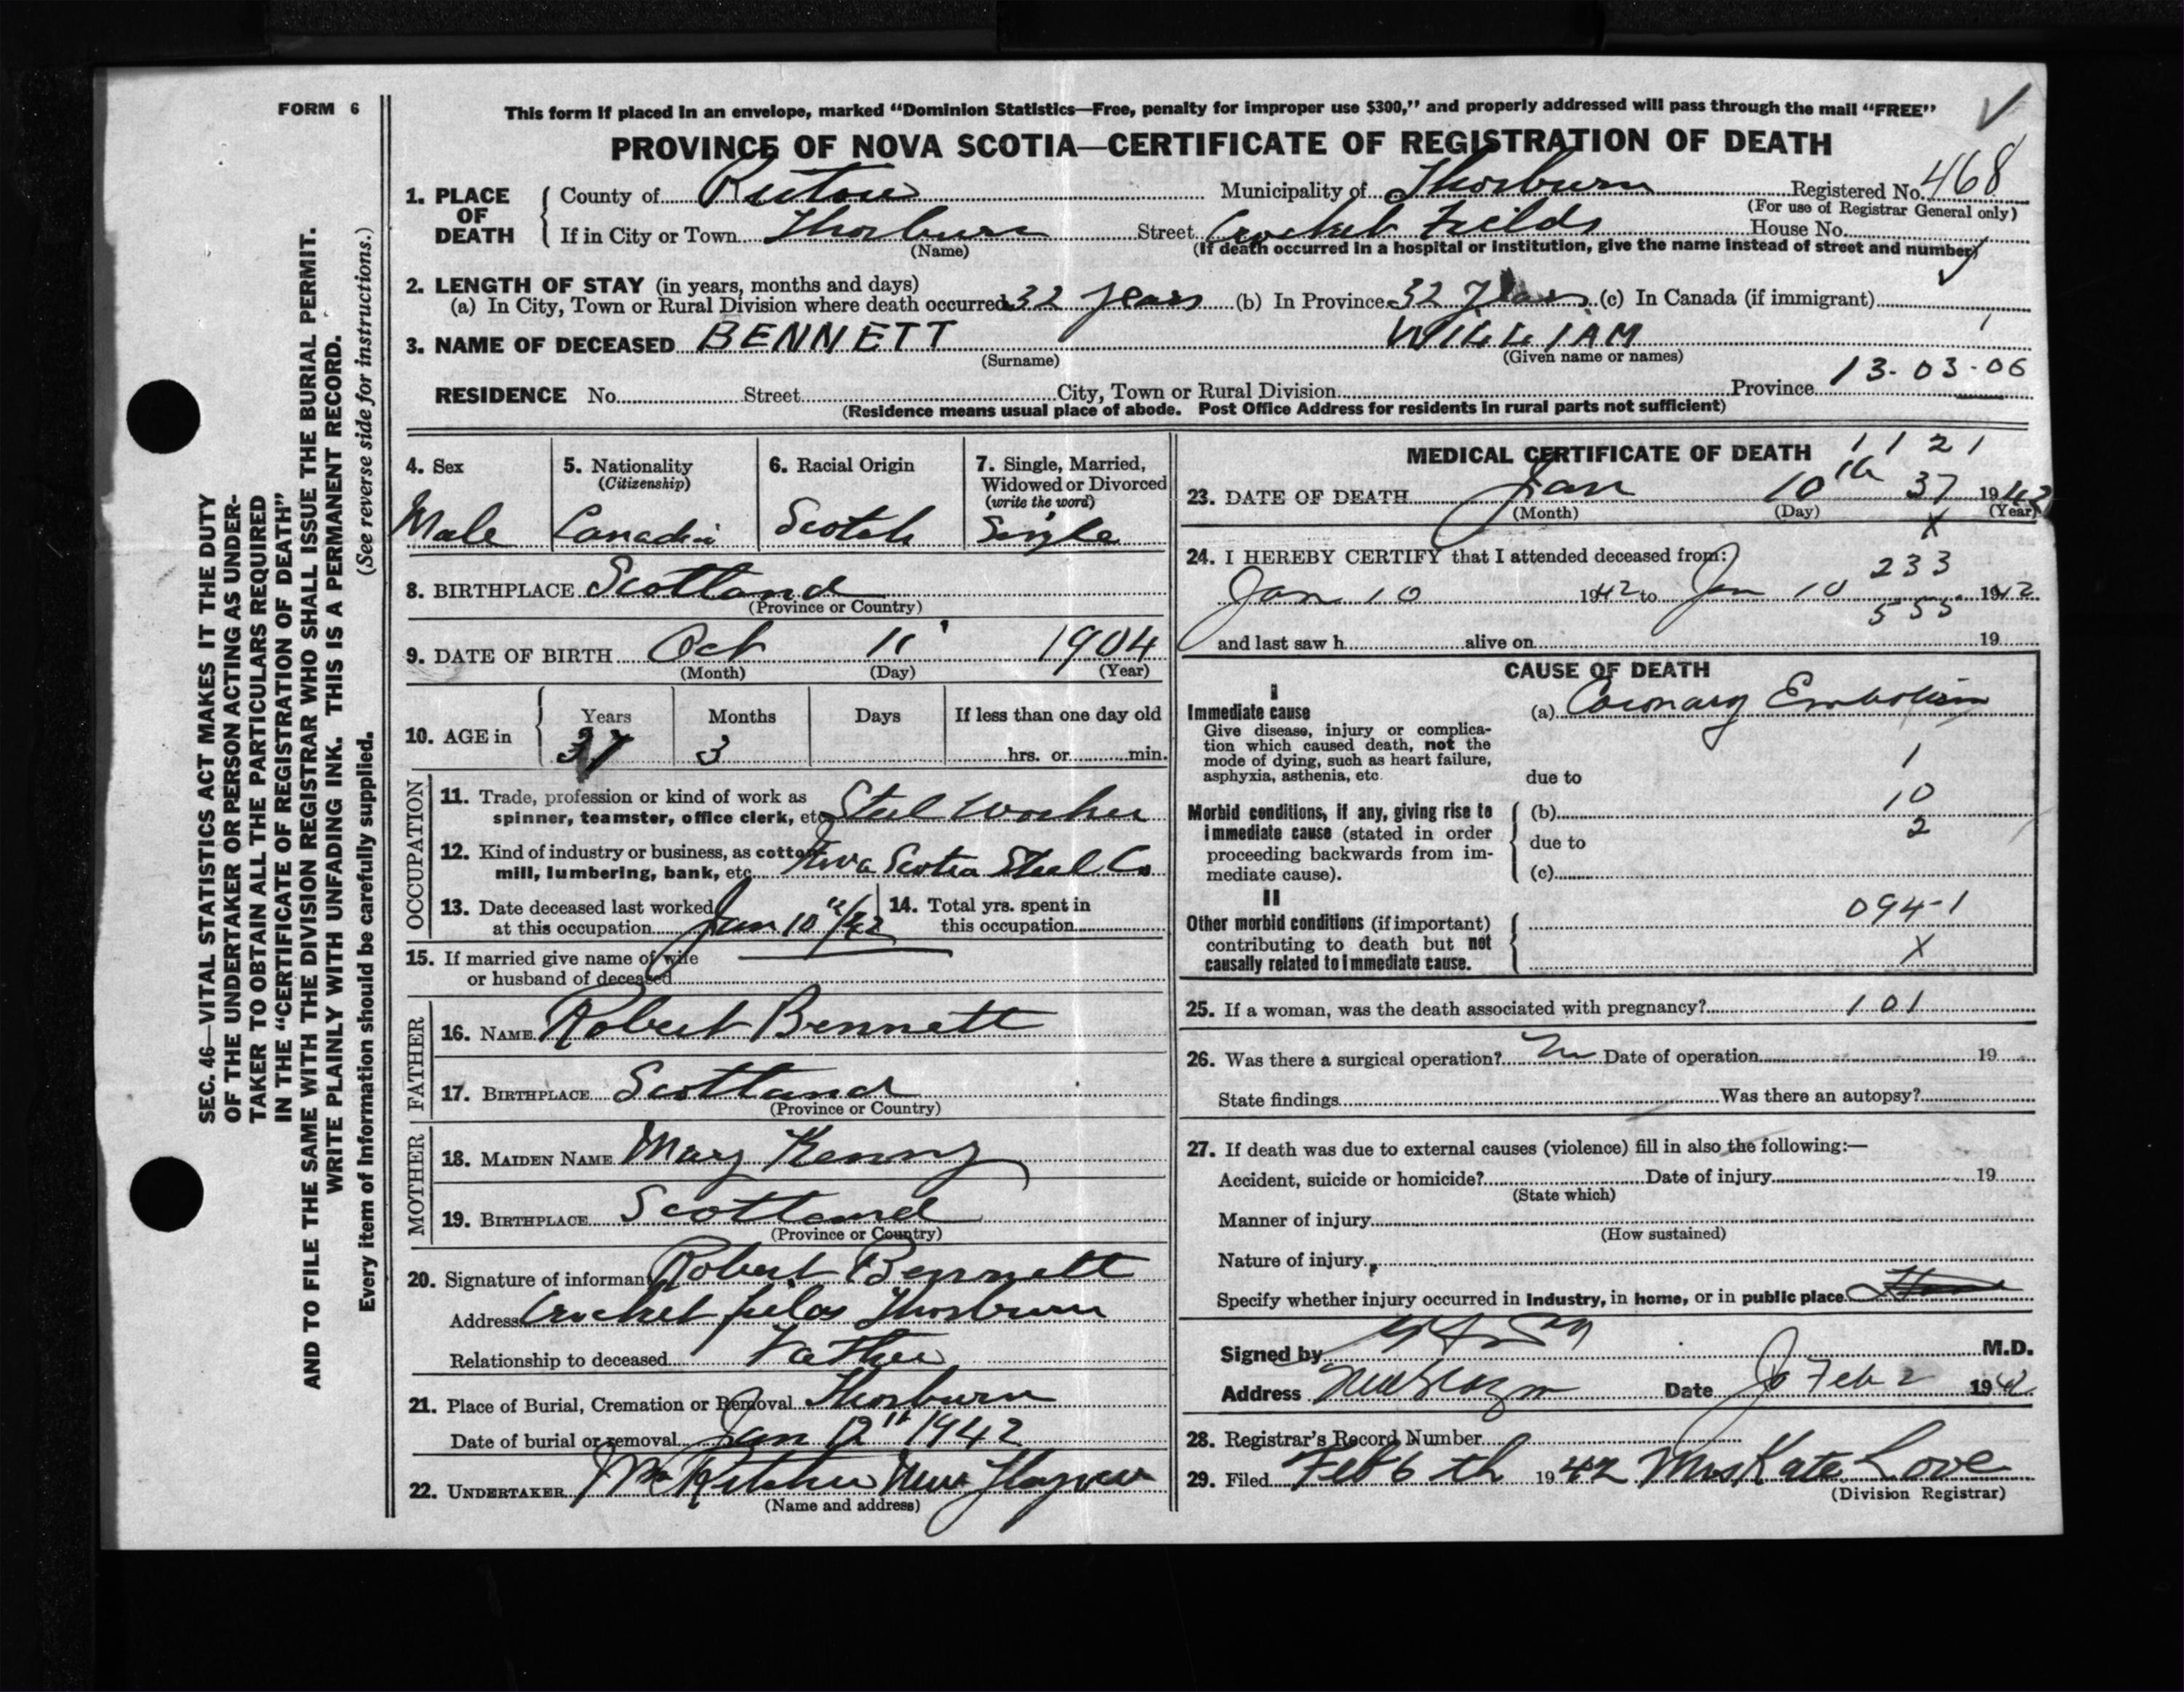 FORM 6
This form if placed in an envelope, marked "Dominion Statistics—Free, penalty for improper use $300," and properly addressed will pass through the mail "FREE"
PROVINCE OF NOVA SCOTIA—CERTIFICATE OF REGISTRATION OF DEATH
SEC. 46—VITAL STATISTICS ACT MAKES IT THE DUTY
OF THE UNDERTAKER OR PERSON ACTING AS UNDER-
TAKER TO OBTAIN ALL THE PARTICULARS REQUIRED
IN THE "CERTIFICATE OF REGISTRATION OF DEATH"
AND TO FILE THE SAME WITH THE DIVISION REGISTRAR WHO SHALL ISSUE THE BURIAL PERMIT.
WRITE PLAINLY WITH UNFADING INK. THIS IS A PERMANENT RECORD.
Every item of information should be carefully supplied. (See reverse side for instructions.)
1. PLACE OF DEATH County of Pictou Municipality of Thorburn Registered No. 468
(For use of Registrar General only)
If in City or Town Thorburn Street Crocket Fields House No.
(Name) (If death occurred in a hospital or institution, give the name instead of street and number)
2. LENGTH OF STAY (in years, months and days)
(a) In City, Town or Rural Division where death occurred 32 years (b) In Province 32 years (c) In Canada (if immigrant)
3. NAME OF DECEASED BENNETT WILLIAM
(Surname) (Given name or names)
13-03-06
RESIDENCE No. Street City, Town or Rural Division Province
(Residence means usual place of abode. Post Office Address for residents in rural parts not sufficient)
4. Sex 5. Nationality (Citizenship) 6. Racial Origin 7. Single, Married, Widowed or Divorced (write the word)
Male Canadin Scotch Single
8. BIRTHPLACE Scotland
(Province or Country)
9. DATE OF BIRTH Oct 11 1904
(Month) (Day) (Year)
10. AGE in Years Months Days If less than one day old
37 3 hrs. or min.
OCCUPATION
11. Trade, profession or kind of work as
spinner, teamster, office clerk, etc. Steel Worker
12. Kind of industry or business, as cotton
mill, lumbering, bank, etc. Nova Scotia Steel Co
13. Date deceased last worked
at this occupation Jan 10th/42
14. Total yrs. spent in
this occupation
15. If married give name of wife
or husband of deceased
FATHER
16. NAME Robert Bennett
17. BIRTHPLACE Scotland
(Province or Country)
MOTHER
18. MAIDEN NAME Mary Kenny
19. BIRTHPLACE Scotland
(Province or Country)
20. Signature of informant Robert Bennett
Address Crocket fields Thorburn
Relationship to deceased Father
21. Place of Burial, Cremation or Removal Thorburn
Date of burial or removal Jan 12th 1942
22. UNDERTAKER New Glasgow
(Name and address)
MEDICAL CERTIFICATE OF DEATH 1121
23. DATE OF DEATH Jan 10th 37 1942
(Month) (Day) (Year)
X
24. I HEREBY CERTIFY that I attended deceased from:
233
Jan 10 1942 to Jan 10 1942
555
and last saw h alive on 19
CAUSE OF DEATH
I
Immediate cause (a) Coronary Embolism
Give disease, injury or complica-
tion which caused death, not the
mode of dying, such as heart failure,
asphyxia, asthenia, etc.
1
due to
10
Morbid conditions, if any, giving rise to (b)
2
immediate cause (stated in order due to
proceeding backwards from im-
mediate cause). (c)
II
094-1
Other morbid conditions (if important)
contributing to death but not
X
causally related to immediate cause.
25. If a woman, was the death associated with pregnancy? 101
26. Was there a surgical operation? No Date of operation 19
State findings Was there an autopsy?
27. If death was due to external causes (violence) fill in also the following:—
Accident, suicide or homicide? Date of injury 19
(State which)
Manner of injury
(How sustained)
Nature of injury
Specify whether injury occurred in industry, in home, or in public place
Signed by M.D.
Address New Glasgow Date Feb 2 1942
28. Registrar's Record Number
29. Filed Feb 6th 1942 Mrs Kate Love
(Division Registrar)